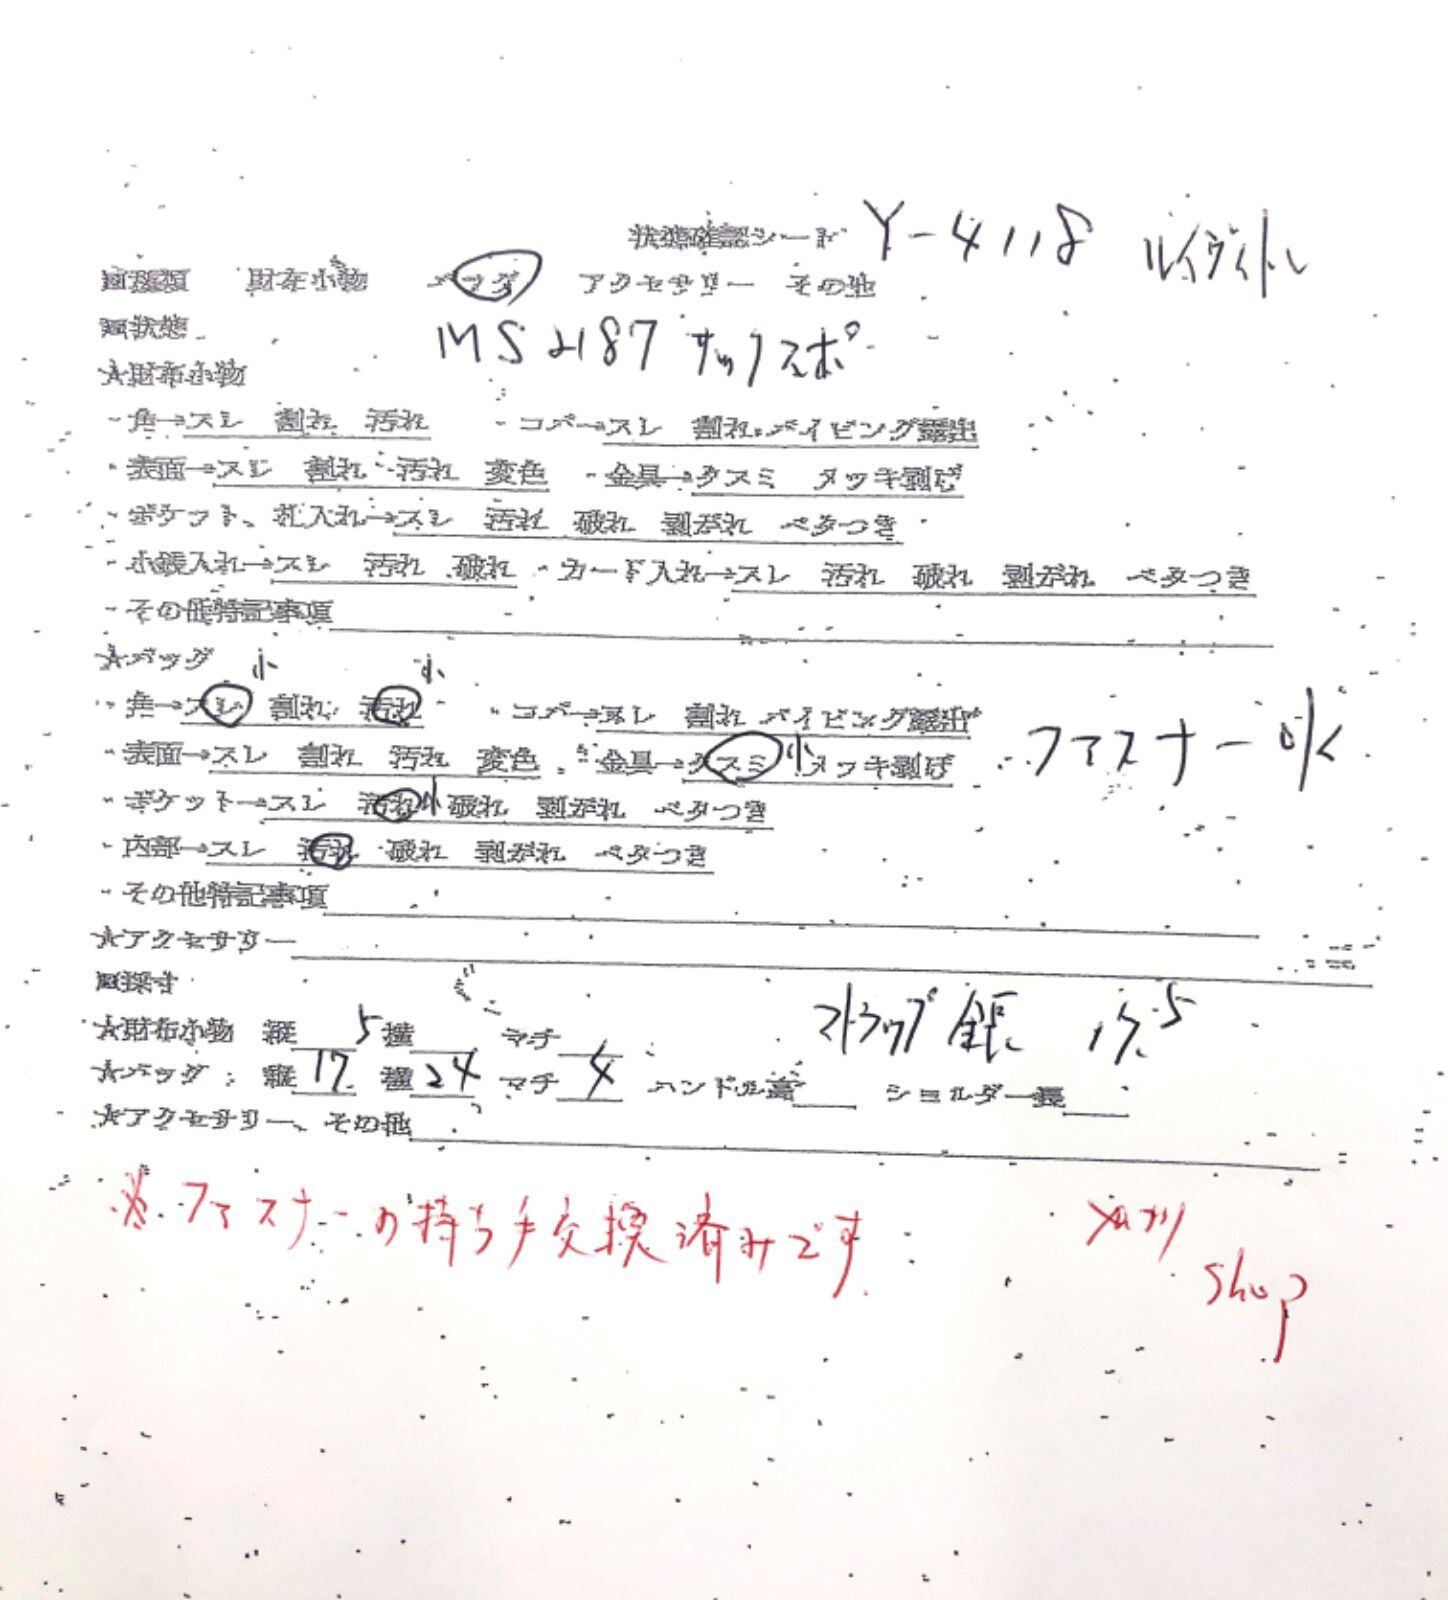 状態確認シート Y-4118 ルイヴィトン
■種類 財布小物 バッグ アクセサリー その他
■状態 MS2187 サックスポ
★財布小物
・角→スレ 割れ 汚れ ・コバ→スレ 割れ パイピング露出
・表面→スレ 割れ 汚れ 変色 ・金具→クスミ メッキ剥げ
・ポケット、札入れ→スレ 汚れ 破れ 剥がれ ベタつき
・小銭入れ→スレ 汚れ 破れ ・カード入れ→スレ 汚れ 破れ 剥がれ ベタつき
・その他特記事項
★バッグ 小 小
・角→スレ 割れ 汚れ ・コバ→スレ 割れ パイピング露出
・表面→スレ 割れ 汚れ 変色 ・金具→クスミ 小 メッキ剥げ ファスナー
・ポケット→スレ 汚れ 小 破れ 剥がれ ベタつき
・内部→スレ 汚れ 破れ 剥がれ ベタつき
・その他特記事項
★アクセサリー
■採寸
★財布小物 縦 5 横 マチ ストラップ 全長
★バッグ 縦 17 横 24 マチ 4 ハンドル高 ショルダー長
★アクセサリー、その他
※ファスナーの持ち手交換済みです
shop